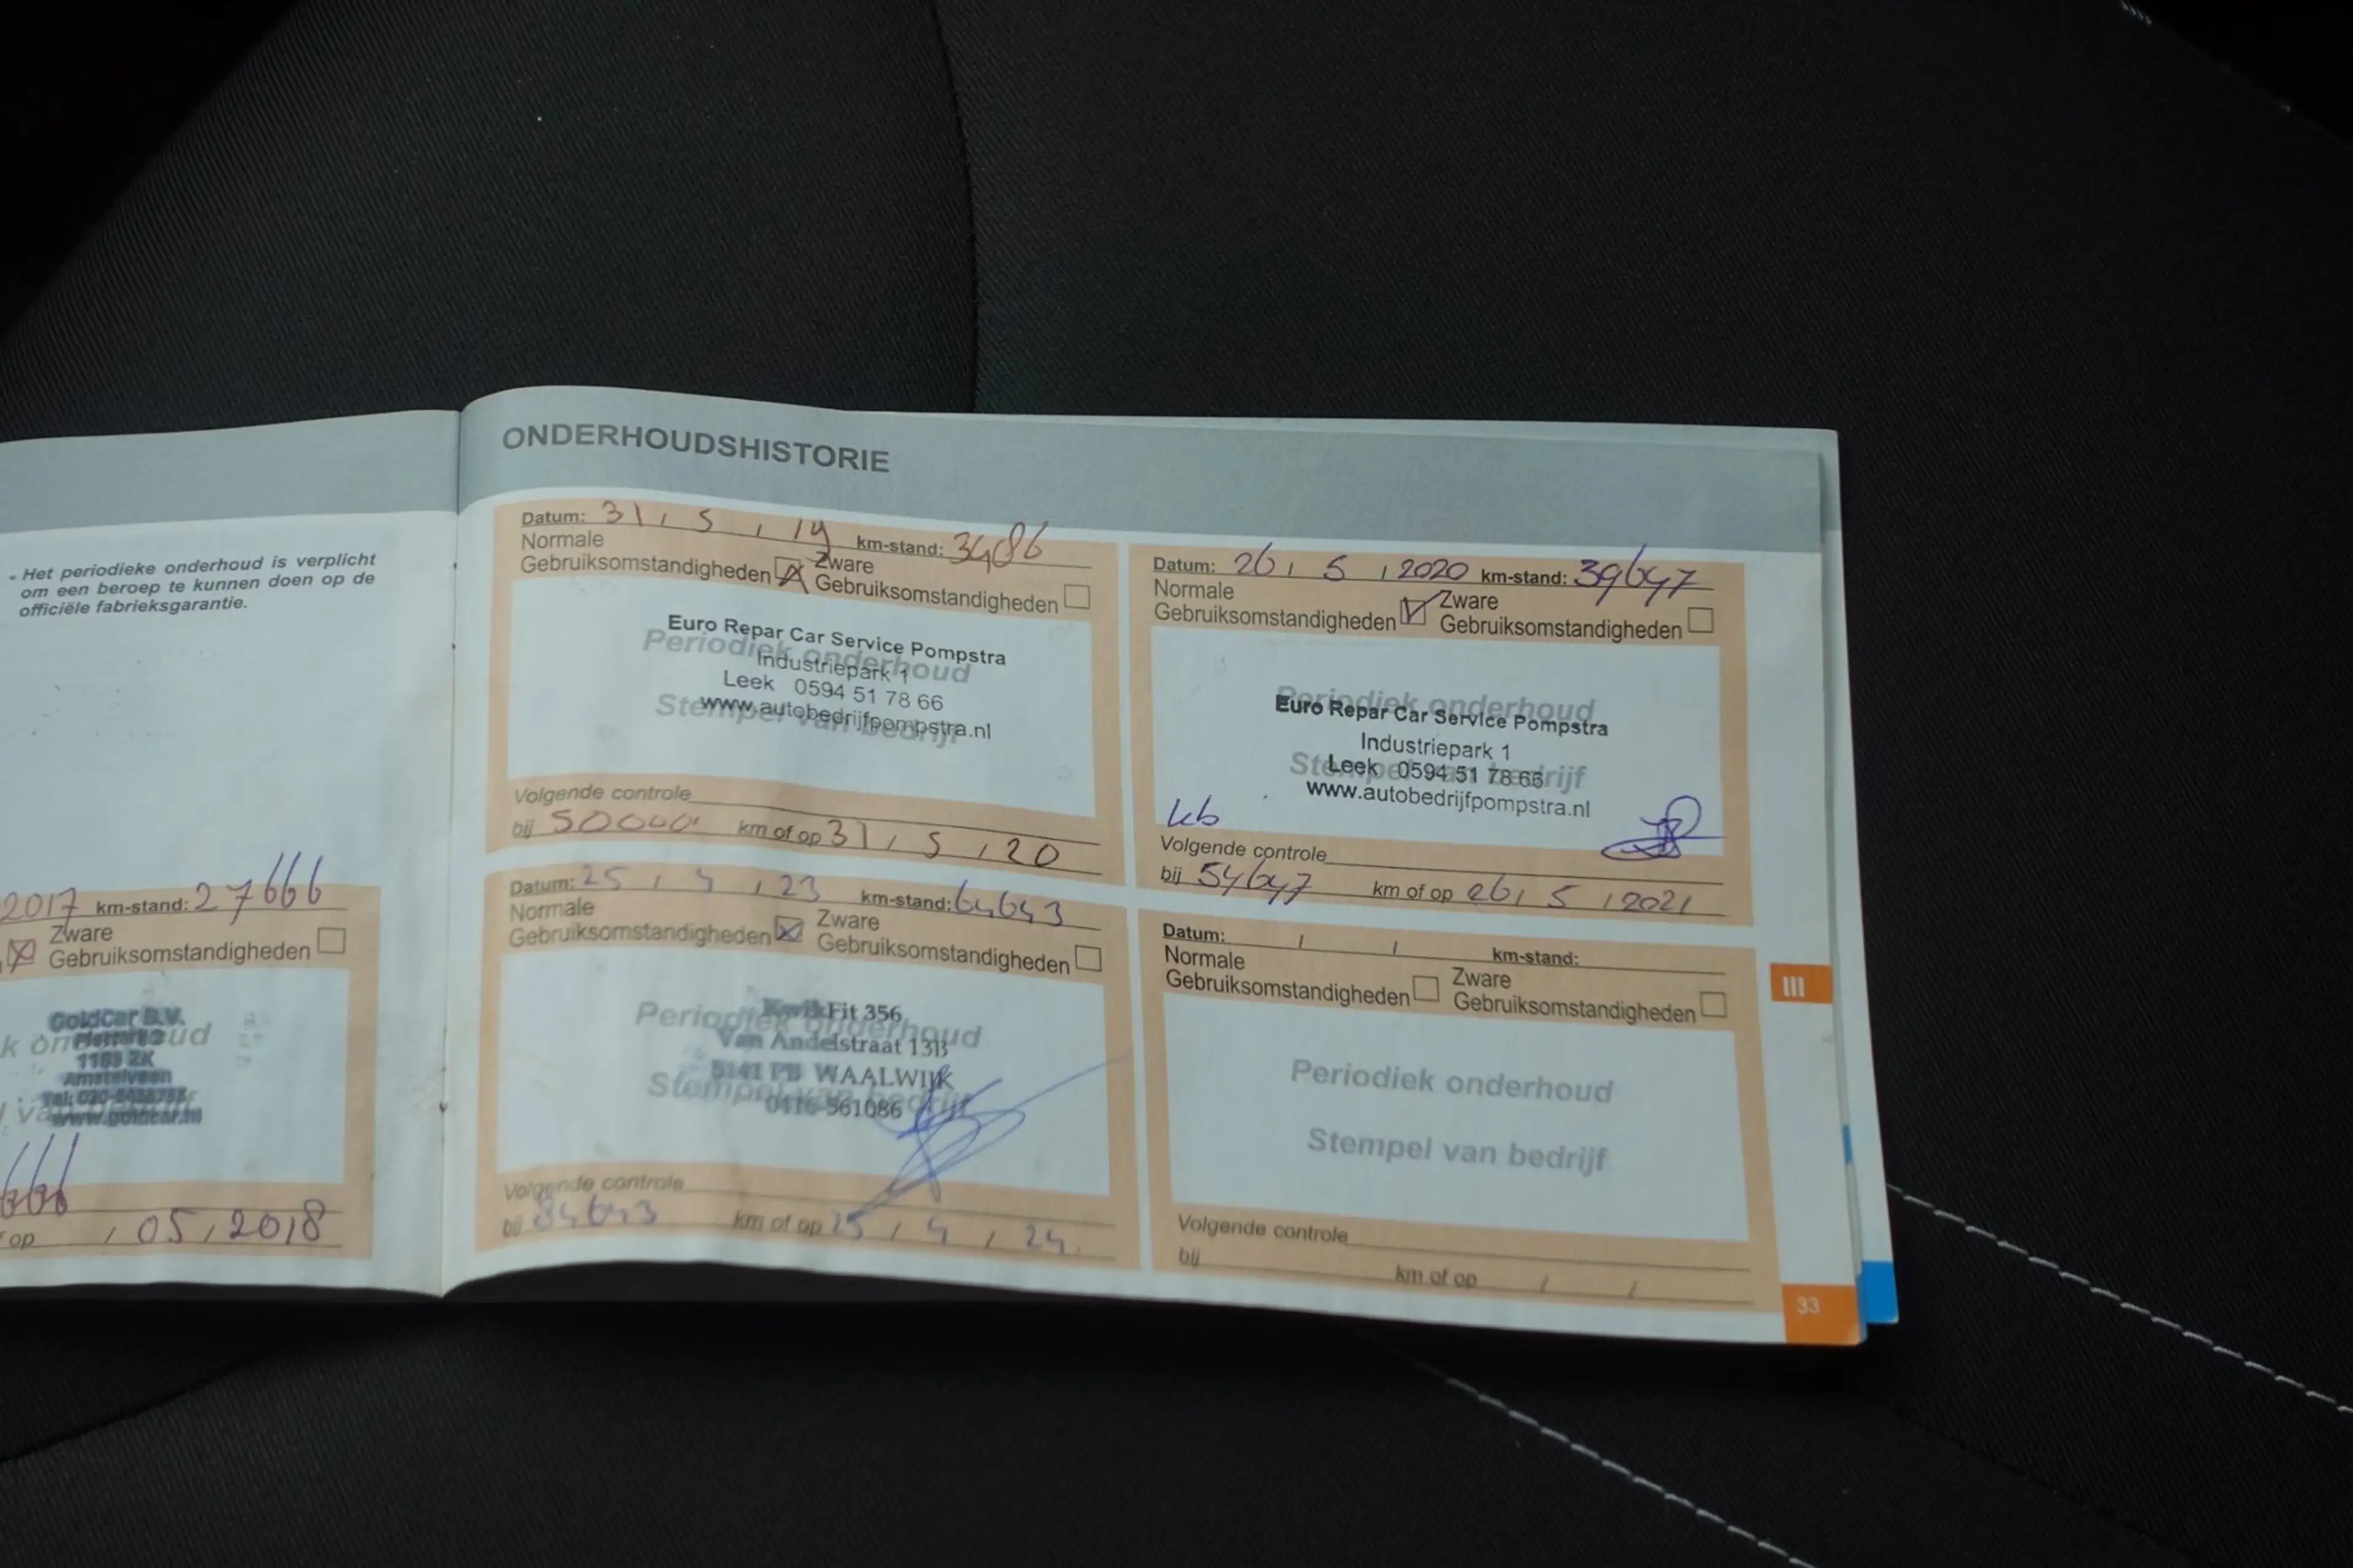 - Het periodieke onderhoud is verplicht
om een beroep te kunnen doen op de
officiële fabrieksgarantie.
2017 km-stand: 27666
Zware
Gebruiksomstandigheden
GoldCar B.V.
1185 ZK
Amstelveen
www.goldcar.nl
op / 05 / 2018
ONDERHOUDSHISTORIE
Datum: 31 / 5 / 19 km-stand: 3486
Normale
Gebruiksomstandigheden
Zware
Gebruiksomstandigheden
Periodiek onderhoud
Stempel van bedrijf
Euro Repar Car Service Pompstra
Industriepark 1
Leek 0594 51 78 66
www.autobedrijfpompstra.nl
Volgende controle
bij 50000 km of op 31 / 5 / 20
Datum: 26 / 5 / 2020 km-stand: 39647
Normale
Gebruiksomstandigheden
Zware
Gebruiksomstandigheden
Periodiek onderhoud
Stempel van bedrijf
Euro Repar Car Service Pompstra
Industriepark 1
Leek 0594 51 78 66
www.autobedrijfpompstra.nl
Volgende controle
bij 54647 km of op 26 / 5 / 2021
Datum: 25 / 4 / 23 km-stand: 64643
Normale
Gebruiksomstandigheden
Zware
Gebruiksomstandigheden
Periodiek onderhoud
Stempel van bedrijf
KwikFit 356
Van Andelstraat 13B
5141 PB WAALWIJK
0416-561086
Volgende controle
bij 84643 km of op 25 / 4 / 24
Datum: / / km-stand:
Normale
Gebruiksomstandigheden
Zware
Gebruiksomstandigheden
Periodiek onderhoud
Stempel van bedrijf
Volgende controle
bij km of op / /
III
33